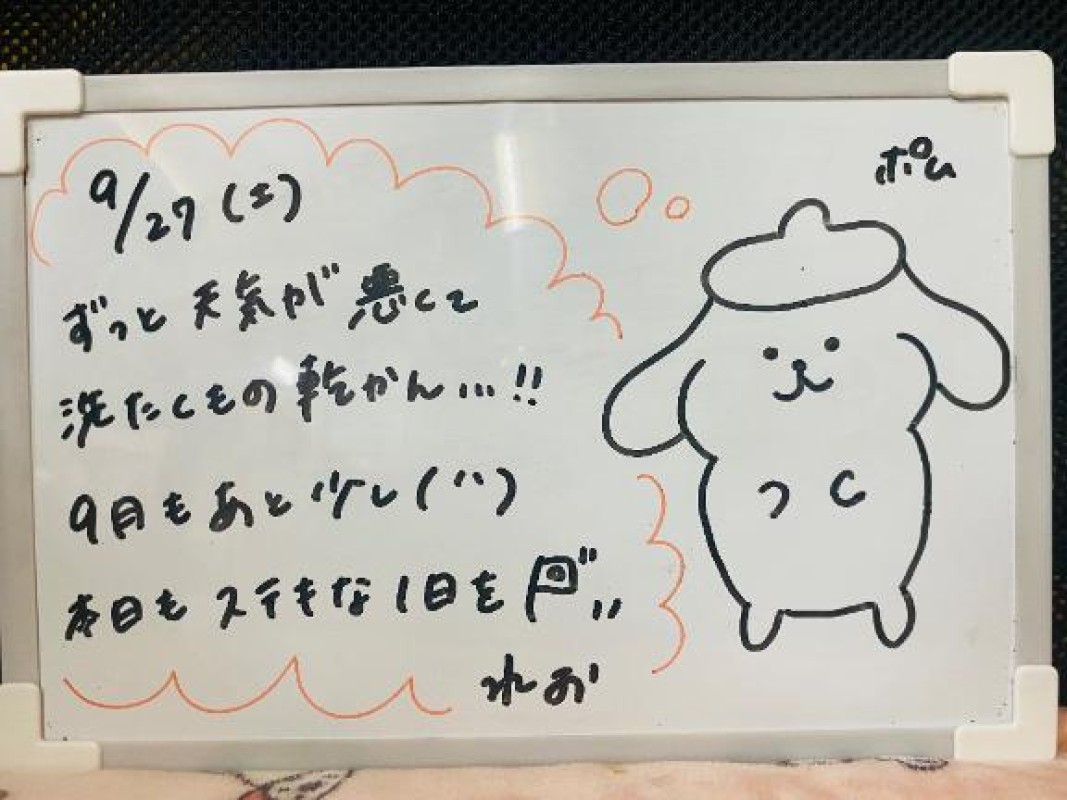 9/27(土)
ずっと天気が悪くて
洗たくもの乾かん...!!
9月もあと少し(¨)
本日もステキな1日を
れお
ポム